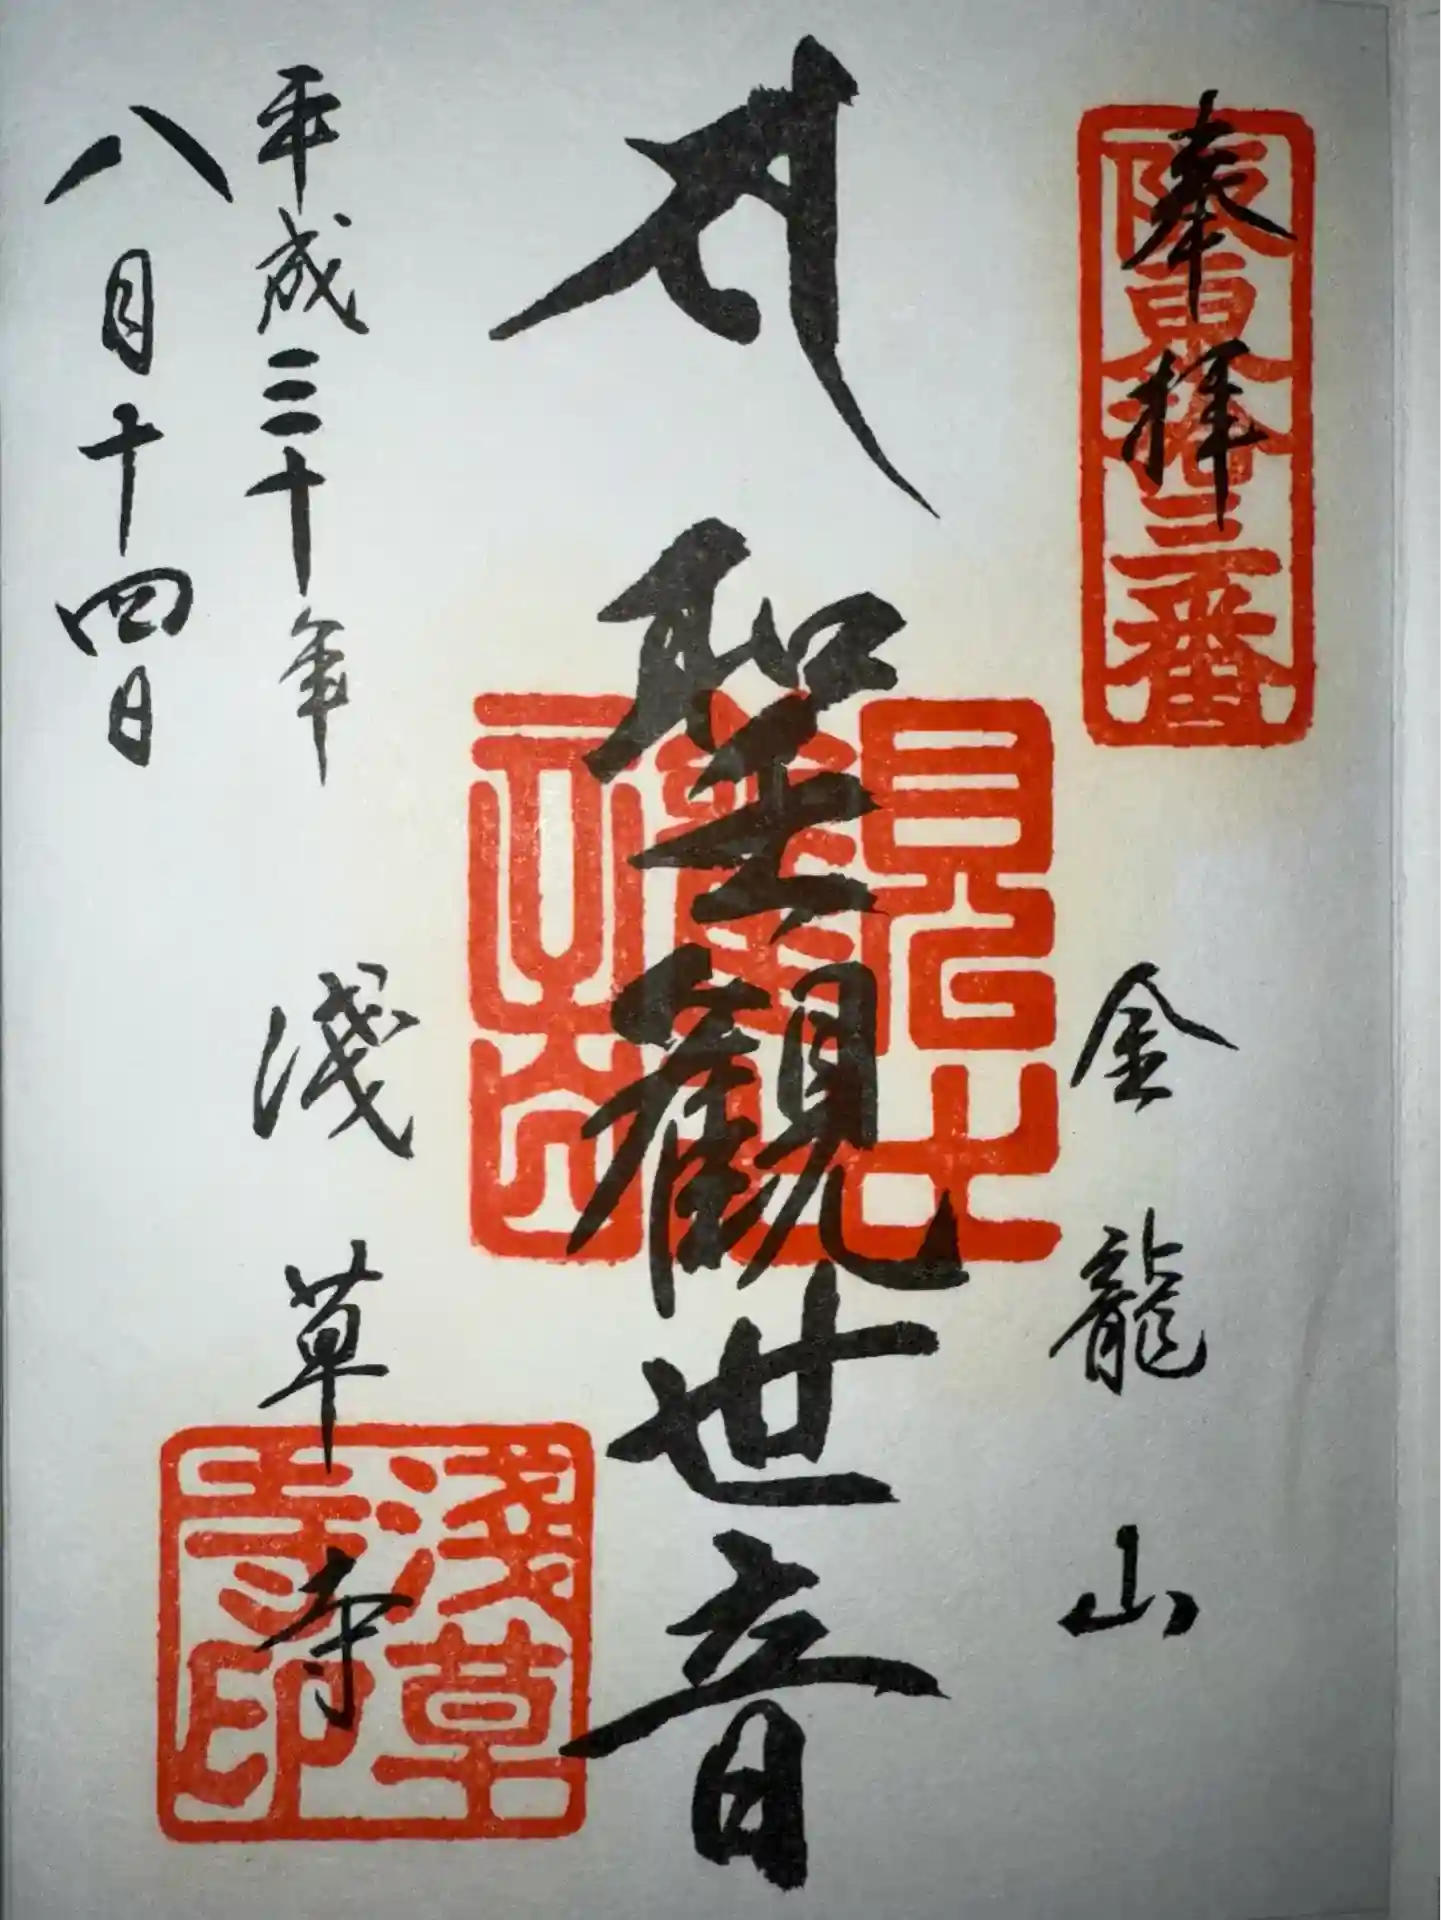 奉拝
坂東拾三番
金龍山
聖観世音
浅草寺
平成三十年
八月十四日
浅草寺印